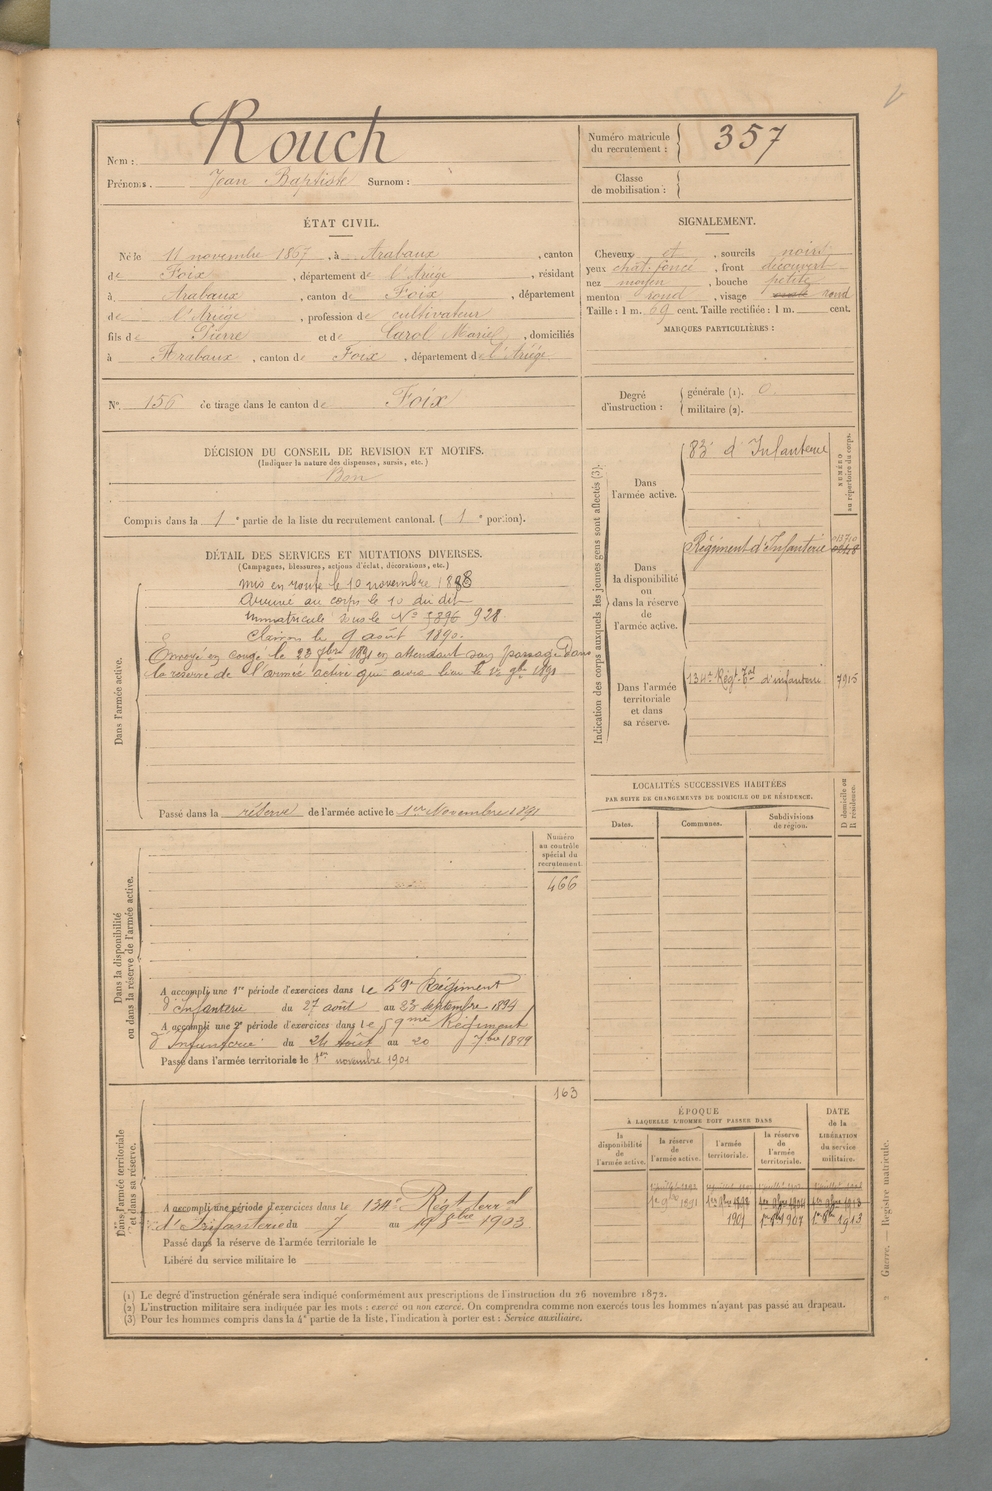 Rouch
Nom :
Prénoms. Jean Baptiste Surnom :
Numéro matricule du recrutement : 357
Classe de mobilisation :
ÉTAT CIVIL.
Né le 11 novembre 1867, à Arabaux, canton
de Foix, département de l'Ariège, résidant
à Arabaux, canton de Foix, département
de l'Ariège, profession de cultivateur
fils de Pierre et de Carol Marie, domiciliés
à Arabaux, canton de Foix, département de l'Ariège.
SIGNALEMENT.
Cheveux et, sourcils noirs
yeux chat. foncé, front découvert
nez moyen, bouche petite
menton rond, visage rond
Taille : 1 m. 69 cent. Taille rectifiée : 1 m. cent.
MARQUES PARTICULIÈRES :
N° 156 de tirage dans le canton de Foix
Degré d'instruction : générale (1). 0.
militaire (2).
DÉCISION DU CONSEIL DE REVISION ET MOTIFS.
(Indiquer la nature des dispenses, sursis, etc.)
Bon
Compris dans la 1e partie de la liste du recrutement cantonal. ( 1e portion).
DÉTAIL DES SERVICES ET MUTATIONS DIVERSES.
(Campagnes, blessures, actions d'éclat, décorations, etc.)
Dans l'armée active.
mis en route le 10 novembre 1888
Arrivé au corps le 10 du dit
Immatriculé sous le N° 3896 928
Clairon le 9 août 1890.
Envoyé en congé le 23 7bre 1891 en attendant son passage dans
la réserve de l'armée active qui aura lieu le 1er 9bre 1891
Passé dans la réserve de l'armée active le 1er Novembre 1891
Indication des corps auxquels les jeunes gens sont affectés (3).
NUMÉRO au répertoire du corps.
Dans l'armée active.
83e d'Infanterie
Dans la disponibilité ou dans la réserve de l'armée active.
Régiment d'Infanterie
Dans l'armée territoriale et dans sa réserve.
134e Régt Tal d'infanterie 7915
LOCALITÉS SUCCESSIVES HABITÉES
PAR SUITE DE CHANGEMENTS DE DOMICILE OU DE RÉSIDENCE.
D domicile ou R résidence.
Dates. Communes. Subdivisions de région.
Dans la disponibilité ou dans la réserve de l'armée active.
Numéro au contrôle spécial du recrutement.
466
A accompli une 1re période d'exercices dans le 59e Régiment
d'Infanterie du 27 août au 23 septembre 1894
A accompli une 2e période d'exercices dans le 59me Régiment
d'Infanterie du 24 Août au 20 7bre 1899
Passé dans l'armée territoriale le 1er novembre 1901
Dans l'armée territoriale et dans sa réserve.
163
A accompli une période d'exercices dans le 134e Régt terral
d'Infanterie du 7 au 19 8bre 1903
Passé dans la réserve de l'armée territoriale le
Libéré du service militaire le
ÉPOQUE
À LAQUELLE L'HOMME DOIT PASSER DANS
la disponibilité de l'armée active. la réserve de l'armée active. l'armée territoriale. la réserve de l'armée territoriale.
DATE de la LIBÉRATION du service militaire.
1er 9bre 1891
1901 1er 9bre 1907 1er 9bre 1913
(1) Le degré d'instruction générale sera indiqué conformément aux prescriptions de l'instruction du 26 novembre 1872.
(2) L'instruction militaire sera indiquée par les mots : exercé ou non exercé. On comprendra comme non exercés tous les hommes n'ayant pas passé au drapeau.
(3) Pour les hommes compris dans la 4e partie de la liste, l'indication à porter est : Service auxiliaire.
Guerre. — Registre matricule.